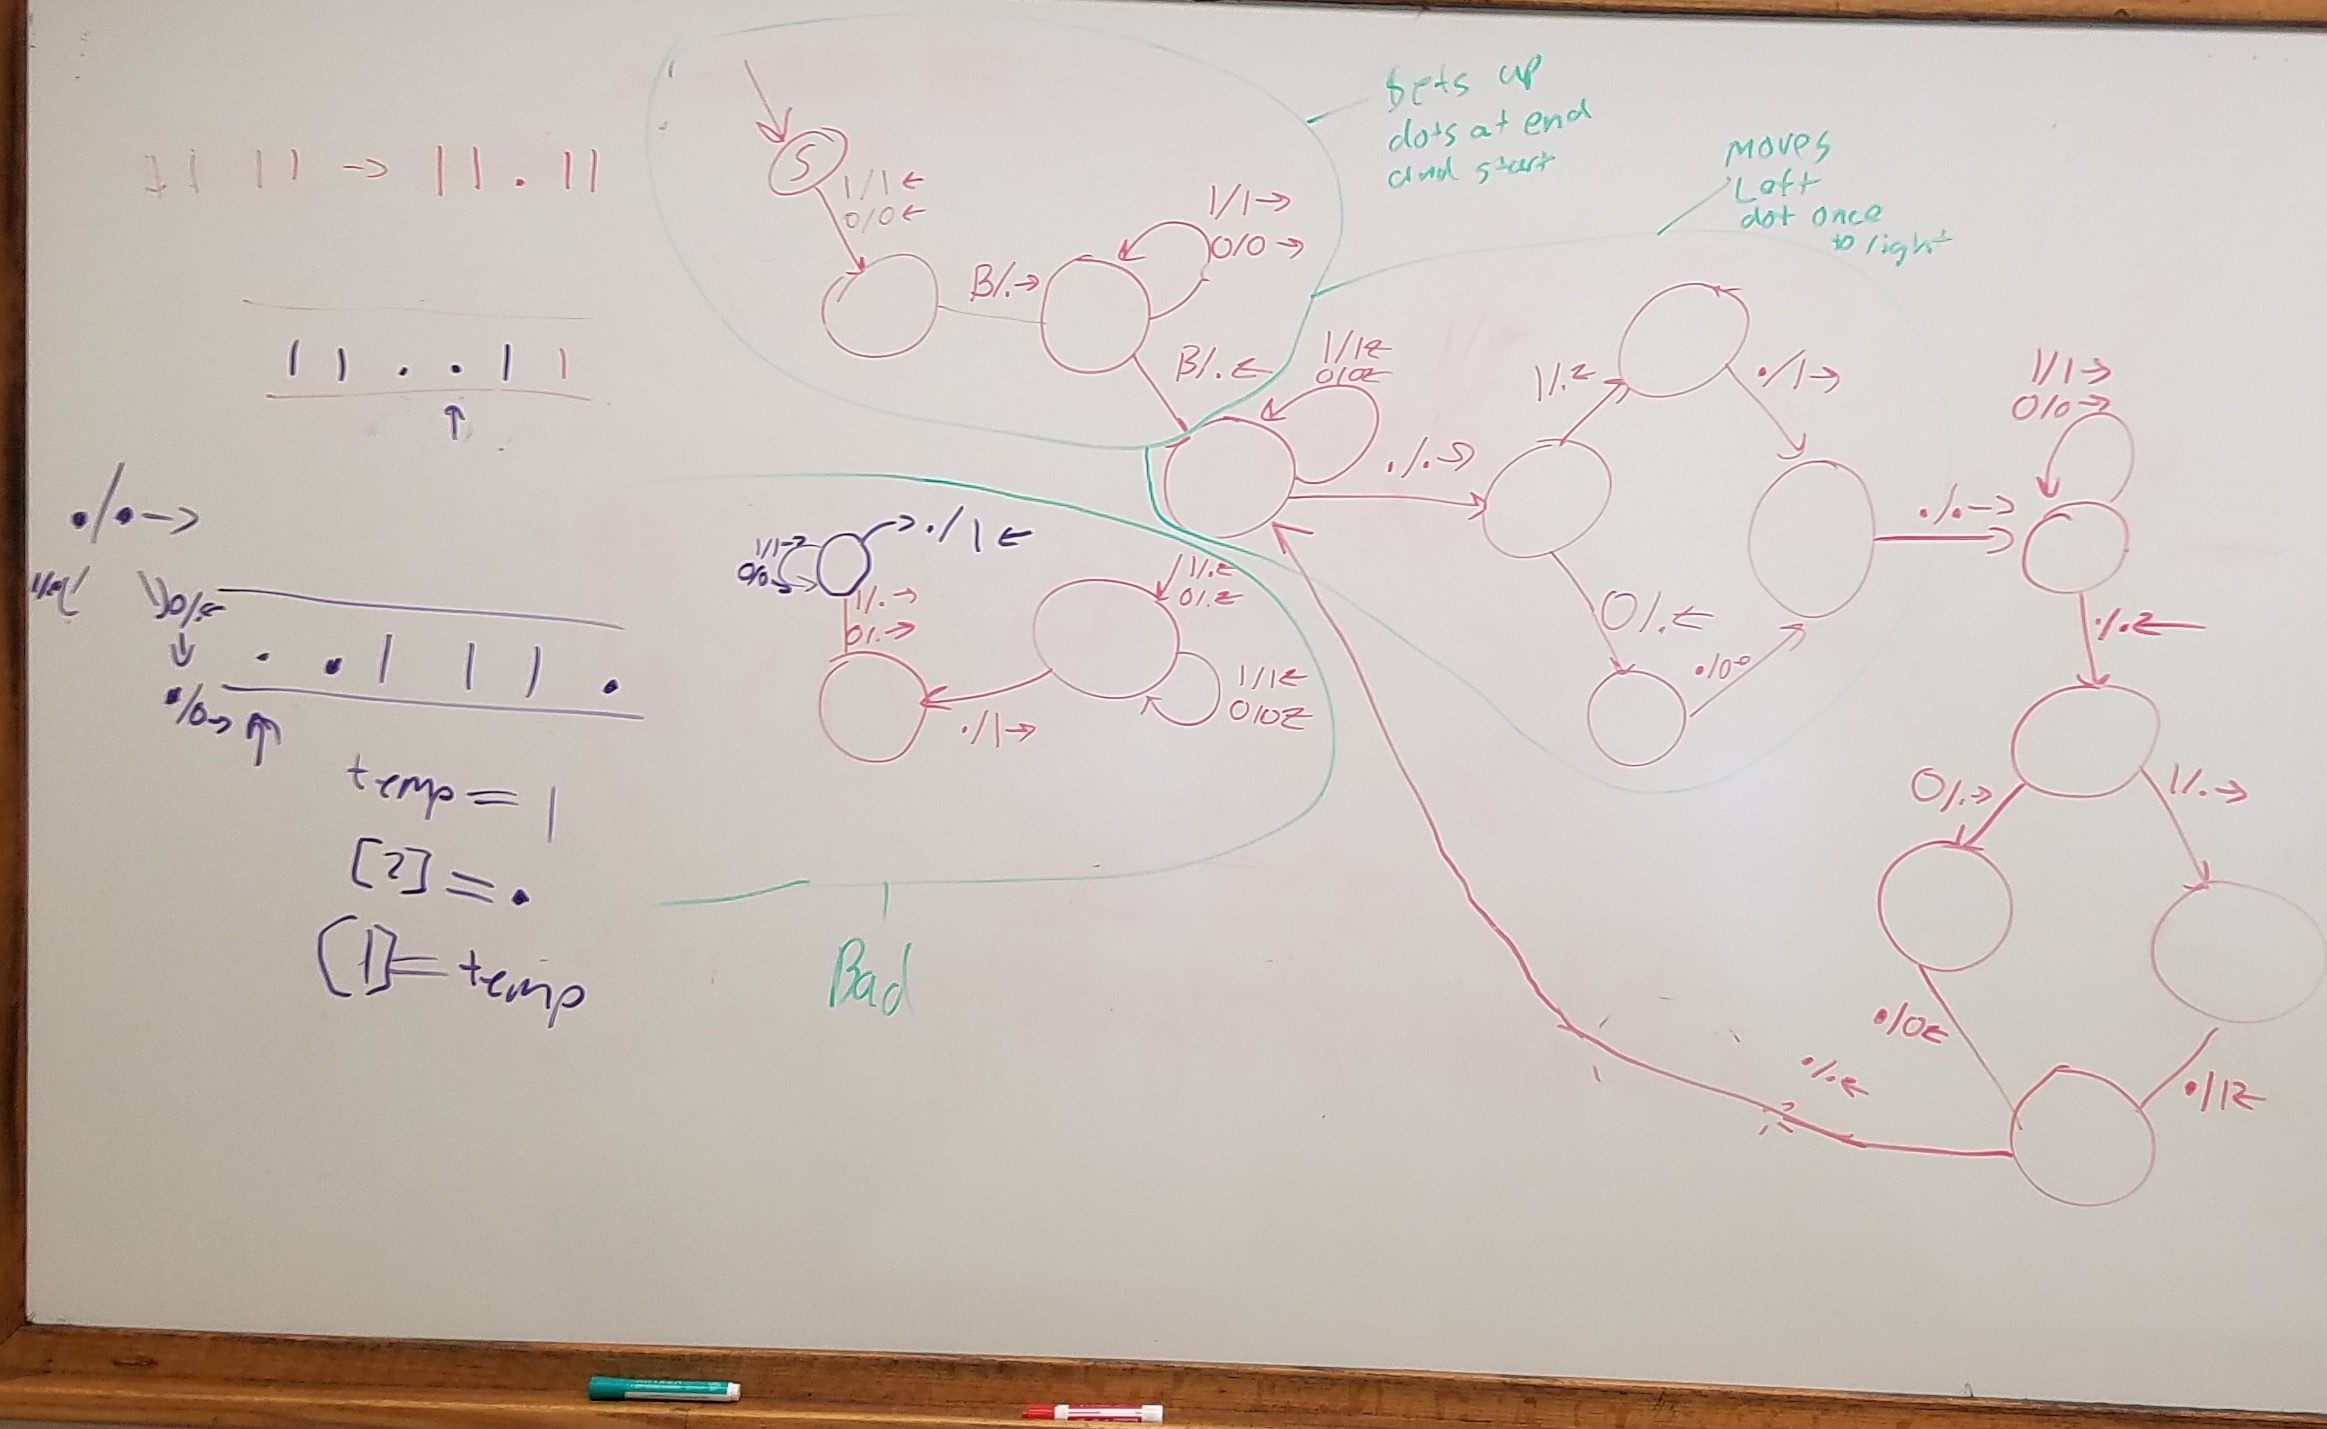 11 11 → 11.11
1 1 . . 1 1
↑
./. →
0/. ←
↓
./0 →
. . 1 1 1 .
↑
temp = 1
[2] = .
[1] = temp
S
1/1 ←
0/0 ←
B/. →
1/1 →
0/0 →
B/. ←
Sets up
dots at end
and start
1/1 ←
0/0 ←
./. →
1/. ←
./1 →
0/. ←
./0 →
moves
Left
dot once
to right
./. →
1/1 →
0/0 →
./. ←
0/. →
1/. →
./0 ←
./1 ←
./. ←
1/1 →
0/0 →
./1 ←
1/. →
0/. →
1/. ←
0/. ←
1/1 ←
0/0 ←
./1 →
Bad